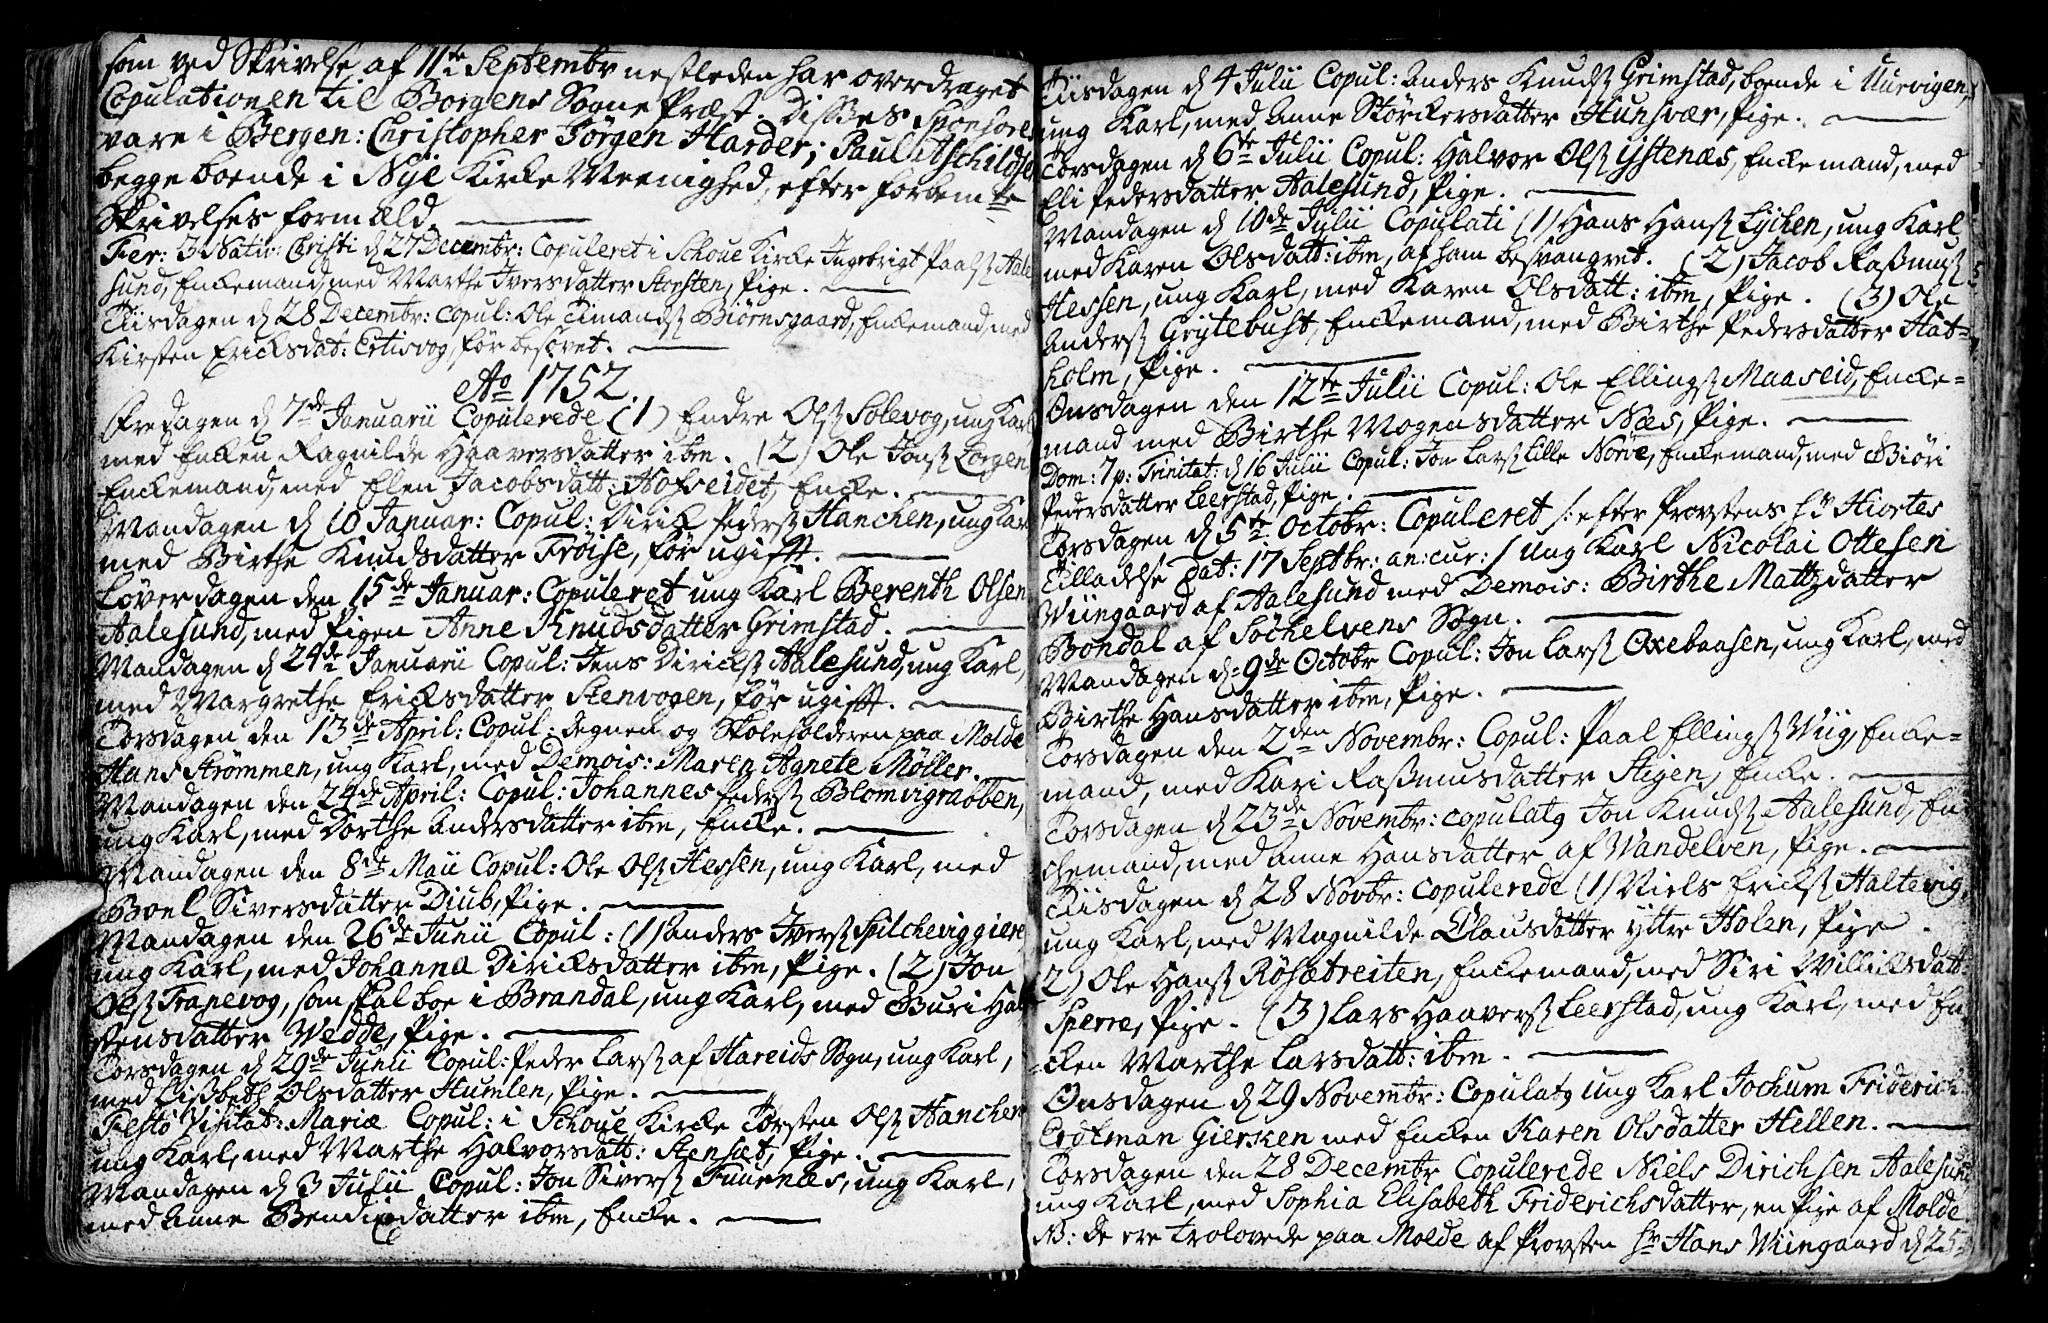 som ved Skrivelse af 11te Septembr nestleden har overdraget
Copulationen til Borgens Sogne Præst. Disses Sponsore
vare i Bergen: Christopher Jörgen Harder; Paul
begge boende i Nye Kirke Meenighed, efter forbemte
Skrivelses formæld.
Fer: 3 Nativ: Christi d 27 Decembr: Copuleret i Schoue Kirke Ingebrigt Paals Aale
sund, Enckemand, med Marthe Iversdatter Storsten, Pige.
Tiisdagen d 28 Decembr: Copul: Ole Timands Biörnsgaard, Enckemand, med
Kirsten Ericksdat: Ertisvog, för besovet.
Ao 1752.
Fredagen d 7de Januarii Copulerede (1) Endre Ols Solevog, ung Karl
med Encken Ragnilde Haaversdatter ibm. (2) Ole Jons Jorgen
Enckemand, med Elen Jacobsdatt: Hofseidet, Encke.
Mandagen d 10 Januar: Copul: Dirik Peders Hanchen, ung Kar
med Birthe Knudsdatter Fröise, för ugifft.
Löverdagen den 15de Januar: Copuleret ung Karl Berenth Olsen
Aalesund, med Pigen Anne Knudsdatter Grimstad.
Mandagen d 24de Januarii Copul: Jens Diricks Aalesund, ung Karl,
med Margrethe Ericksdatter Stenvogen, för ugifft.
Torsdagen den 13de April: Copul: Degnen og Skoleholderen paa Molde
Hans Strømmen, ung Karl, med Demois: Maren Agnete Möller.
Mandagen den 24de April: Copul: Johannes Peders Blomvigraøben,
ung Karl, med Dorthe Andersdatter ibm, Encke.
Mandagen den 8de Maii Copul: Ole Ols Hessen, ung Karl, med
Boel Siversdatter Diub, Pige.
Mandagen den 26de Junii Copul: (1) Anders Ivers Spilcheviggiere
ung Karl, med Johanna Diricksdatter ibm, Pige. (2) Jon
Ols Tranevog, som skal boe i Brandal, ung Karl, med Buri Hal
stensdatter Vedde, Pige.
Torsdagen d 29de Junii Copul: Peder Lars af Hareids Sogn, ung Karl,
med Lisbeth Olsdatter Humlen, Pige.
Festo Visitat: Mariæ Copul: i Schoue Kircke Torsten Ols Hanchen
ung Karl, med Marthe Halvorsdatt: Stensæt, Pige.
Mandagen d 3 Julii Copul: Jon Sivers Fuurnæs, ung Karl,
med Anne Bendixdatter ibm, Encke.
Tiisdagen d 4 Julii Copul: Anders Knuds Grimstad, boende i Uurvigen,
ung Karl, med Anne Störckersdatter Hunsvær, Pige.
Torsdagen d 6te Julii Copul: Halvor Ols Ystenæs, Enckemand, med
Eli Pedersdatter Aalesund, Pige.
Mandagen d 10de Julii Copulati (1) Hans Hans Lychen, ung Karl
med Karen Olsdatt: ibm, af ham besvangret. (2) Jacob Rasmus
Hessen, ung Karl, med Karen Olsdatt: ibm, Pige. (3) Ole
Anders Grytebust, Enckemand, med Birthe Pedersdatter Hat-
holm, Pige.
Onsdagen den 12te Julii Copul: Ole Ellings Maaseid, Encke-
mand med Birthe Mogensdatter Næs, Pige.
Dom: 7 p: Trinitat: d 16 Julii Copul: Jon Lars Lille Nörve, Enckemand, med Biöri
Pedersdatter Leerstad, Pige.
Torsdagen d 5te Octobr: Copuleret /: efter Provstens Hr Hiortes
Tilladelse Dat: 17 Septbr: an: cur: / ung Karl Nicolai Ottesen
Wiingaard af Aalesund med Demois: Birthe Mattzdatter
Bondal af Söchelvens Sogn.
Mandagen d: 9de Octobr Copul: Jon Lars Oxebaasen, ung Karl, med
Birthe Hansdatter ibm, Pige.
Torsdagen den 2den Novembr: Copul: Paal Ellings Wiig, Encke-
mand, med Kari Rasmusdatter Stigen, Encke.
Torsdagen d 23de Novembr: copulatq Jon Knuds Aalesund, En-
chemand, med Anne Hansdatter af Vandelven, Pige.
Tiisdagen d 28 Novbr: copulerede (1) Niels Ericks Haltevig,
ung Karl, med Magnilde Clausdatter Yttre Holen, Pige.
2) Ole Hans Rösætreiten, Enckemand, med Siri Williksdatt:
Sperre, Pige. (3) Lars Haavers Leerstad, ung Karl, med En-
cken Marthe Larsdatt: ibm.
Onsdagen d 29 Novembr: Copulatq ung Karl Jochum Friderich
Erdtman Giersken med Encken Karen Olsdatter Hellen.
Torsdagen den 28 Decembr Copulerede Niels Dirichsen Aalesund
ung Karl, med Sophia Elisabeth Friderichsdatter, en Pige af Molde
NB: de ere trolovede paa Molde af Provsten Hr Hans Wiingaard d 25